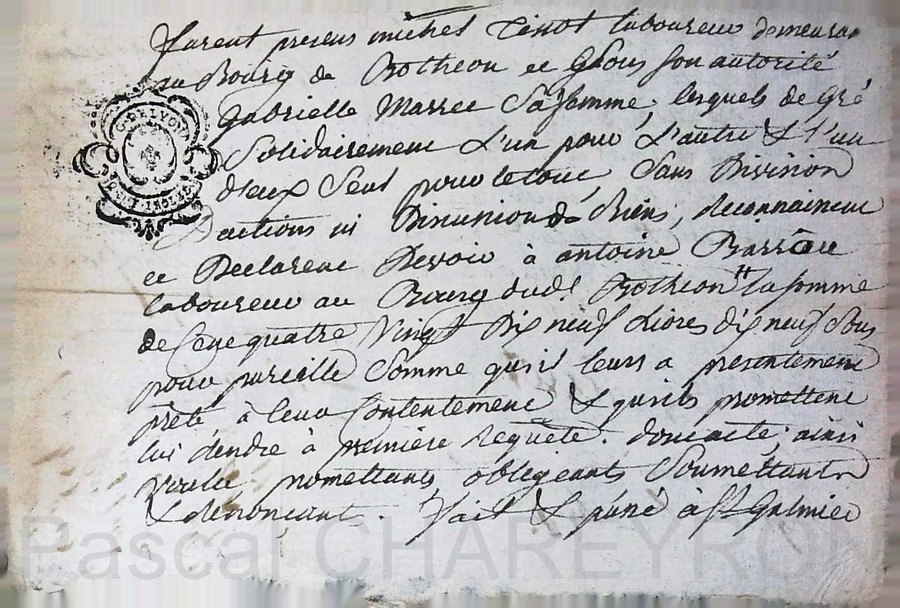 furent presens michel Tenot laboureur demeurant
au Bourg de Rotheon et sous son autorité
Gabrielle Marret Sa femme, lesquels de Gré
Solidairement L'un pour L'autre & l'un
d'eux Seul pour le tout, Sans Division
D'actions ni Disunion de Biens, deconnaissent
et Declarent Devoir à antoine
laboureur au Bourg dud.t Rotheon la somme
de Cent quatre Vingt Dix neuf Livres dix neuf Sous
pour pareille Somme qu'il leurs a presentement
prêté à leur Contentement & qu'ils promettent
lui rendre à première requête. dont acte, ainsi
voulu promettants obligeants Soumettants
& renonçants. fait & passé à St Galmier
G. DE LYON
Pascal CHAREYRON